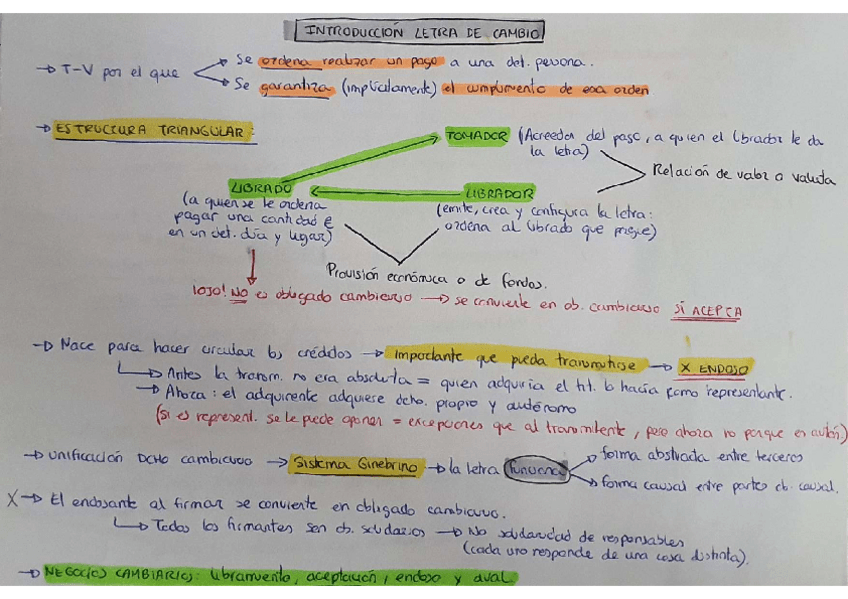 INTRODUCCIÓN LETRA DE CAMBIO
→ T-V por el que
Se ordena realizar un pago a una det. persona.
Se garantiza (implícitamente) el cumplimiento de esa orden
→ ESTRUCTURA TRIANGULAR:
TOMADOR (Acreedor del pago, a quien el librador le da
la letra)
Relación de valor o valuta
LIBRADO
(a quien se le ordena
pagar una cantidad €
en un det. día y lugar)
LIBRADOR
(emite, crea y configura la letra:
ordena al librado que pague)
Provisión económica o de fondos.
¡OJO! NO es obligado cambiario → se convierte en ob. cambiario SI ACEPTA
→ Nace para hacer circular los créditos → importante que pueda transmitirse → X ENDOSO
→ Antes la transm. no era absoluta = quien adquiría el tít. lo hacía como representante.
→ Ahora: el adquirente adquiere dcho. propio y autónomo
(si es represent. se le puede oponer = excepciones que al transmitente, pero ahora no porque es autón)
→ Unificación DCHO cambiario → Sistema Ginebrino → la letra funciona
forma abstracta entre terceros
forma causal entre partes ob. causal.
X → El endosante al firmar se convierte en obligado cambiario.
→ Todos los firmantes son ob. solidarios → No solidaridad de responsables
(cada uno responde de una cosa distinta).
→ NEGOCIOS CAMBIARIOS: libramiento, aceptación, endoso y aval.